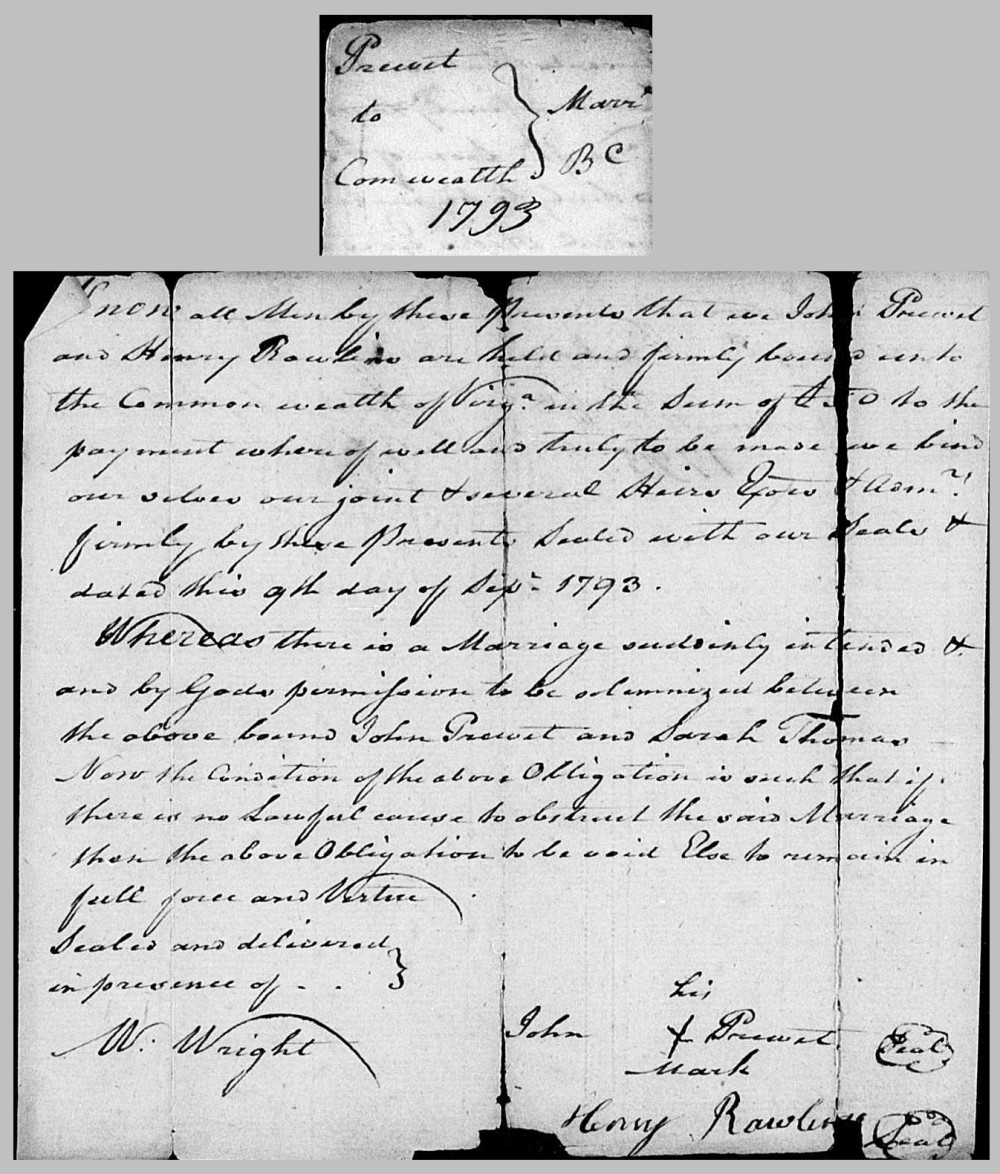 Prewet
to
Comwealth
} Marr.
B C
1793
Know all Men by these Presents that we John Prewet
and Henry Rawlins are held and firmly bound unto
the Common wealth of Virga. in the Sum of £ 50 to the
payment where of well and truly to be made we bind
our selves our joint & several Heirs Exors & Admrs.
firmly by these Presents Sealed with our Seals &
dated this 9th day of Sepr. 1793.
Whereas there is a Marriage suddinly intended &
and by Gods permission to be solemnized between
the above bound John Prewet and Sarah Thomas
Now the Condition of the above Obligation is such that if
there is no Lawful cause to obstruct the said Marriage
then the above Obligation to be void Else to remain in
full force and Virtue
Sealed and delivered
in presence of - . . }
W. Wright
his
John + Prewet Seal
Mark
Henry Rawlins Seal